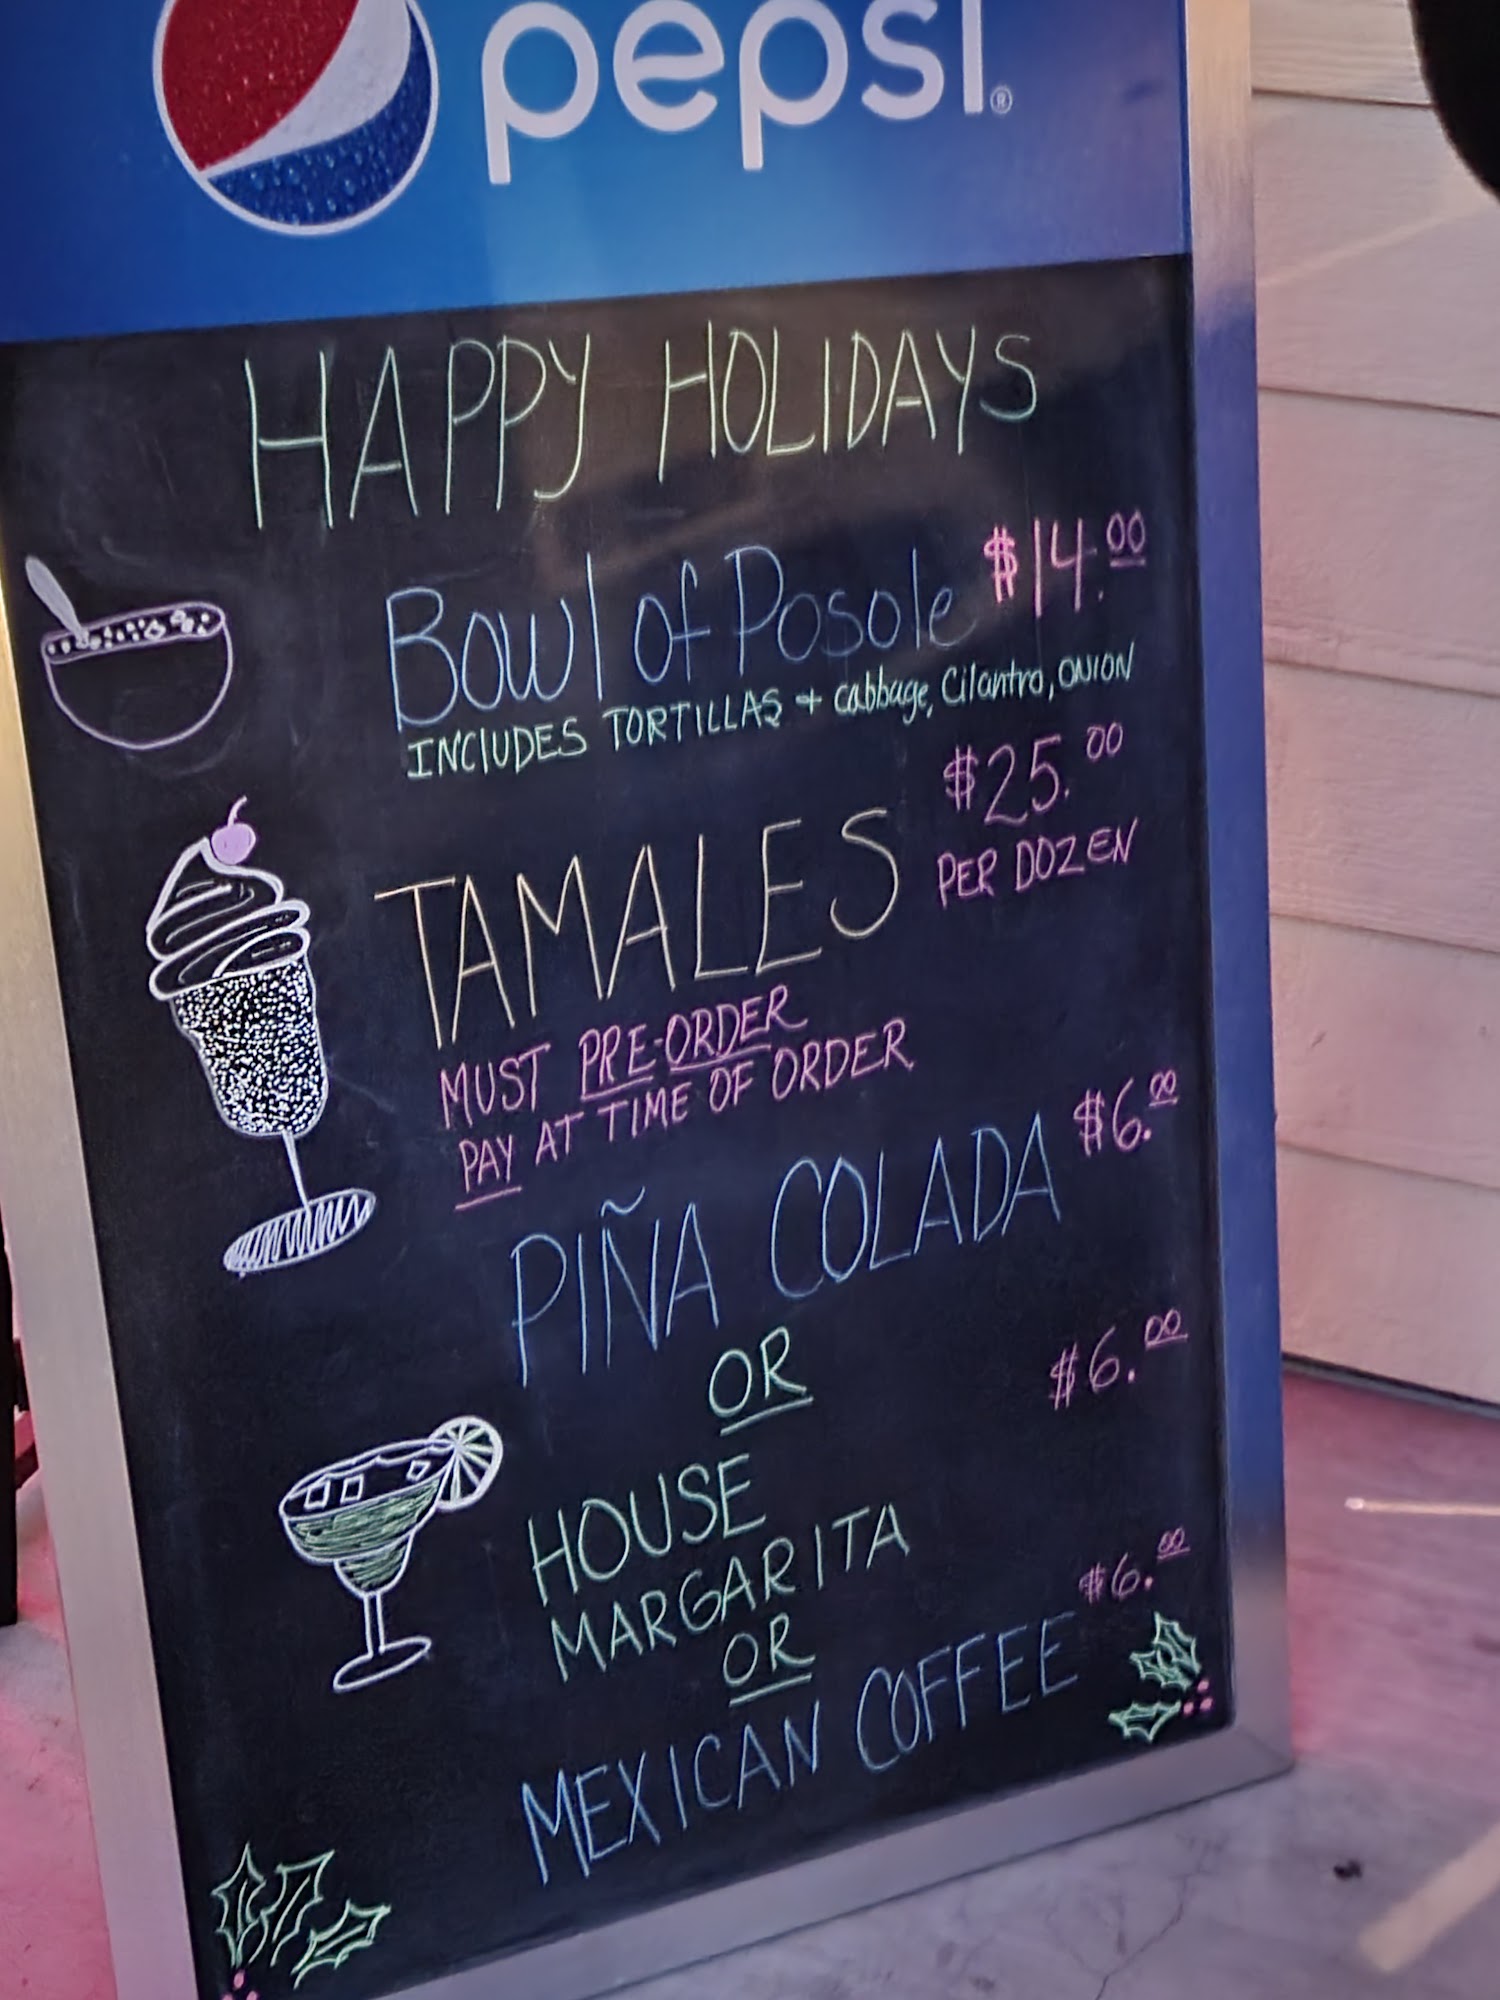 pepsi®
HAPPY HOLIDAYS
Bowl of Posole $14.00
INCLUDES TORTILLAS + Cabbage, Cilantro, ONION
TAMALES $25.00
PER DOZEN
MUST PRE-ORDER
PAY AT TIME OF ORDER
PIÑA COLADA $6.00
OR
$6.00
HOUSE
MARGARITA
OR
$6.00
MEXICAN COFFEE